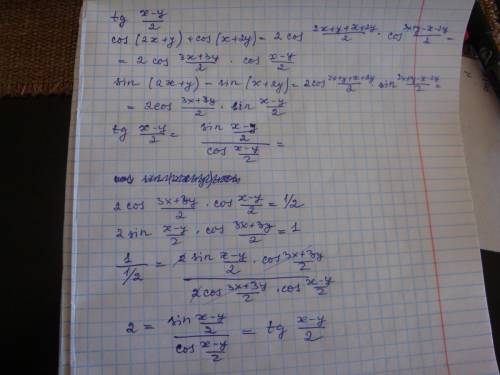 tg (x-y)/2
cos(2x+y)+cos(x+2y)=2cos (2x+y+x+2y)/2 · cos (2x+y-x-2y)/2 =
= 2 cos (3x+3y)/2 · cos (x-y)/2
sin(2x+y)-sin(x+2y)=2cos (2x+y+x+2y)/2 sin (2x+y-x-2y)/2 =
= 2cos (3x+3y)/2 · sin (x-y)/2
tg (x-y)/2 = (sin (x-y)/2)/(cos (x-y)/2) =
2 cos (3x+3y)/2 · cos (x-y)/2 = 1/2
2 sin (x-y)/2 · cos (3x+3y)/2 = 1
1/(1/2) = (2 sin (x-y)/2 · cos (3x+3y)/2)/(2 cos (3x+3y)/2 · cos (x-y)/2)
2 = (sin (x-y)/2)/(cos (x-y)/2) = tg (x-y)/2